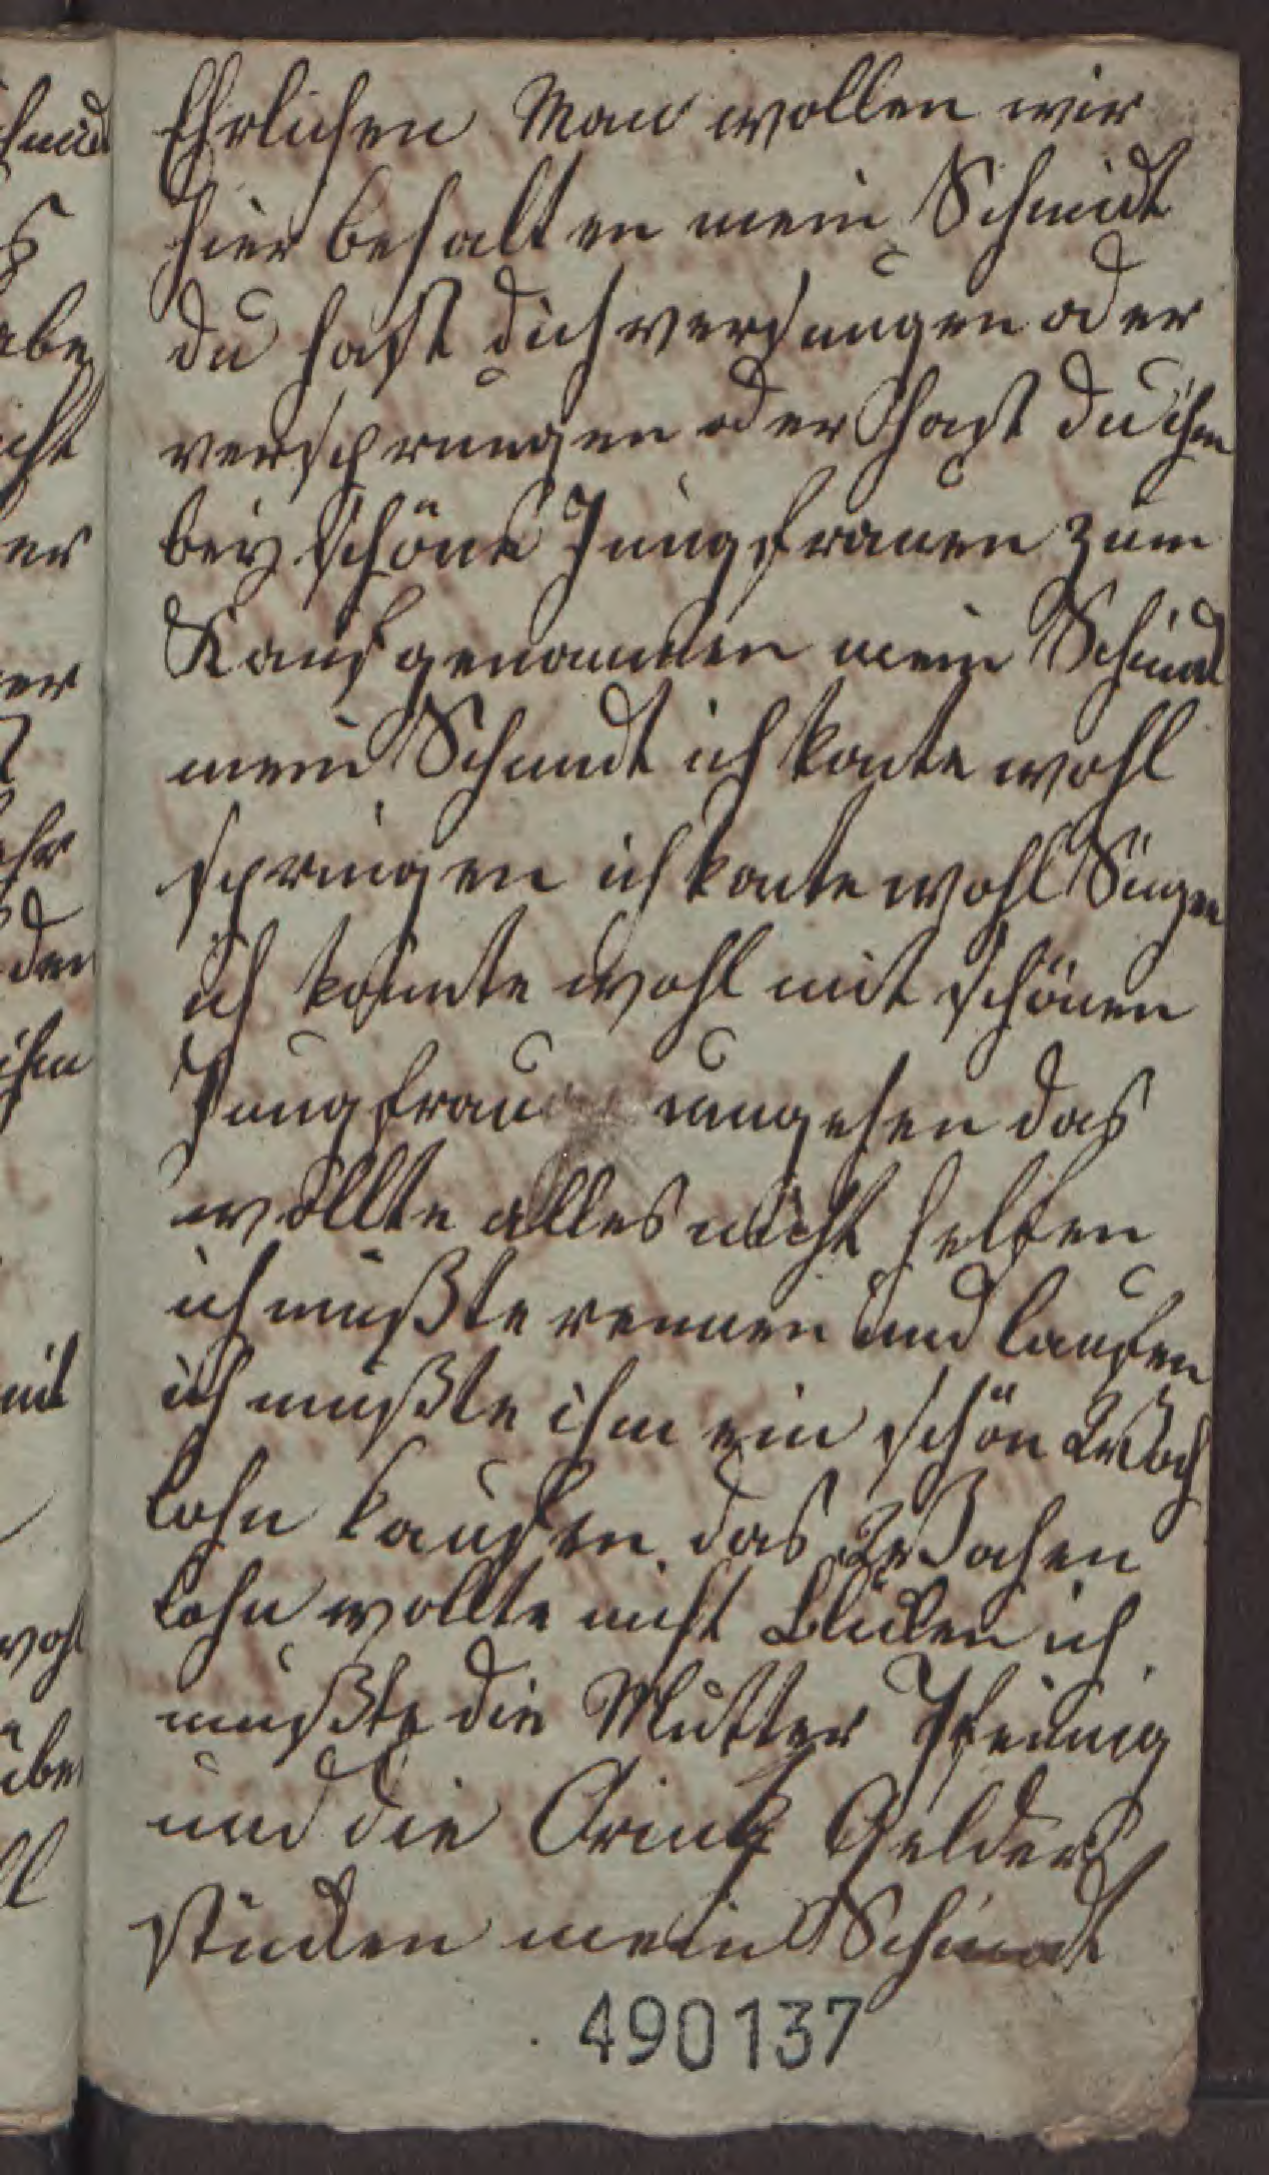 Ehrlichen Man wollen wir
hier behalten mein Schmidt
du hast dich versungen oder
versprungen oder hast du ihn
bey schöne Jungfrauen zum
Kauf genommen mein Schmidt
mein Schmidt ich konte wohl
springen ich konte wohl Singen
ich konnte wohl mit schönen
Jungfrau umgehen das
wollte alles nicht helfen
ich mußte rennen und laufen
ich mußte ihm ein schön
lohn kaufen das
lohn wollte nicht ich
mußte die Mutter Pfennig
und die Gelder
stücken mein Schmidt
490137